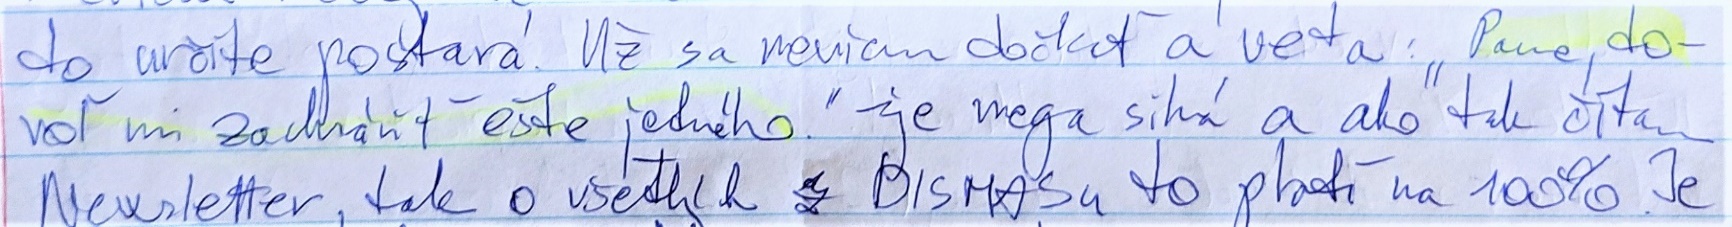 to určite postará. Už sa neviem dočkať a veta: „Pane, do-
voľ mi zachrániť ešte jedného." je mega silná a ako tak čítam
Newsletter, tak o všetkých z DISMASu to platí na 100%. Je